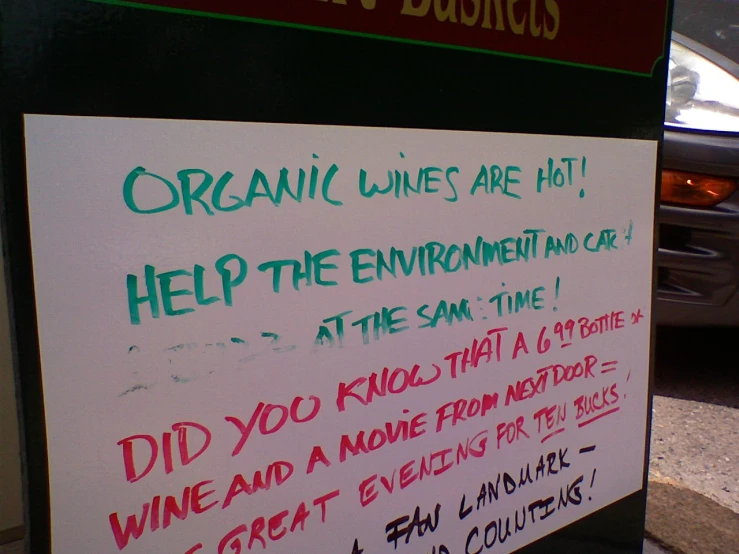 Baskets
ORGANIC WINES ARE HOT!
HELP THE ENVIRONMENT AND
AT THE SAME TIME!
DID YOU KNOW THAT A 6.99 BOTTLE OF
WINE AND A MOVIE FROM NEXT DOOR =
GREAT EVENING FOR TEN BUCKS!
A FAN LANDMARK -
COUNTING!